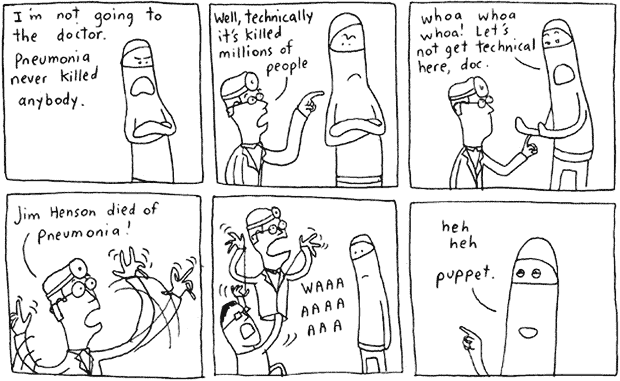 I'm not going to
the doctor.
Pneumonia
never killed
anybody.
Well, technically
it's killed
millions of
people
whoa whoa
whoa! Let's
not get technical
here, doc.
Jim Henson died of
pneumonia!
WAAA
AAAA
AAA
heh
heh
puppet.